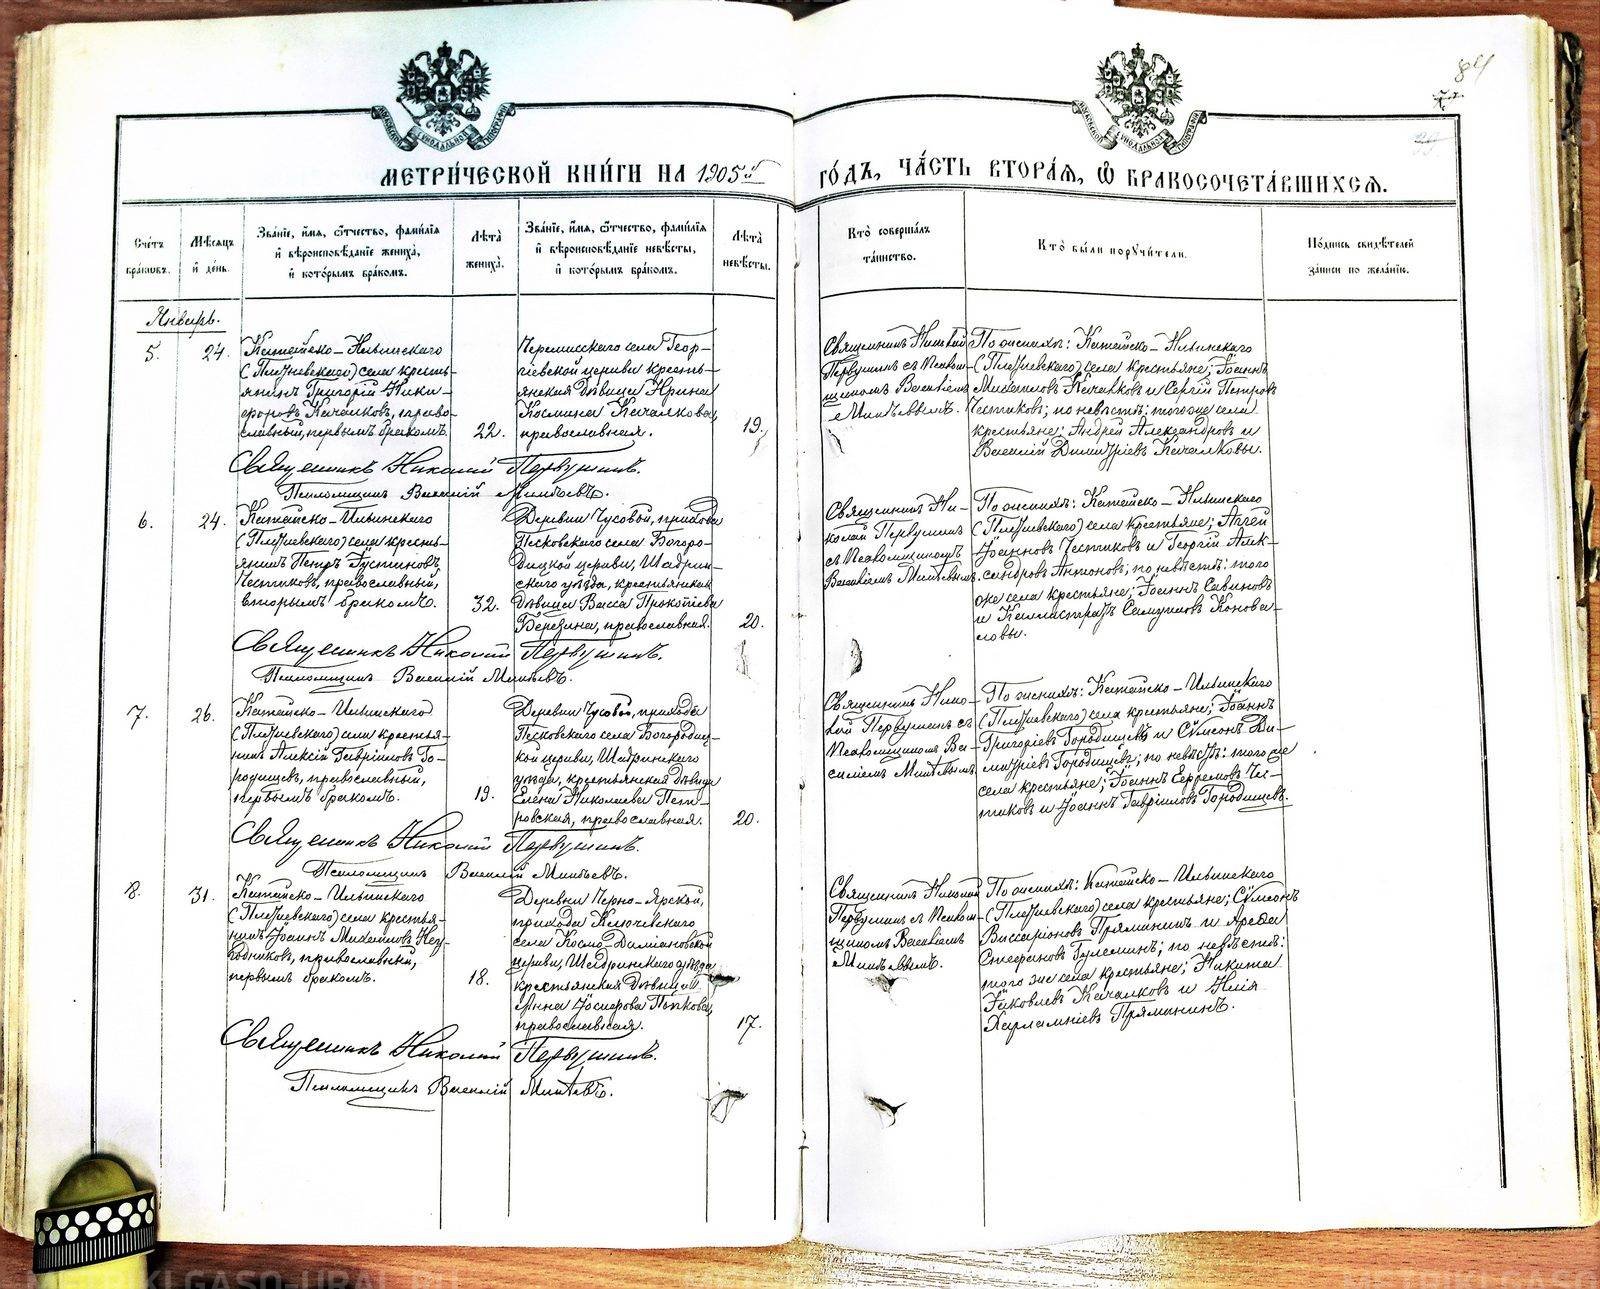 84
МЕТРИ́ЧЕСКОЙ КНИ́ГИ НА 1905й
ГО́ДЪ, ЧА́СТЬ ВТОРА́Я, Ѡ БРАКОСОЧЕТА́ВШИХСЯ.
Сче́тъ
бра́ковъ.
Мѣ́сяцъ
и҆ де́нь.
Зва́нїе, и҆́мя, ѻ҆́тчество, фами́лїя
и҆ вѣроисповѣ́данїе жениха̀,
и҆ кото́рымъ бра́комъ.
Лѣ́та
жениха̀.
Зва́нїе, и҆́мя, ѻ҆́тчество, фами́лїя
и҆ вѣроисповѣ́данїе невѣ́сты,
и҆ кото́рымъ бра́комъ.
Лѣ́та
невѣ́сты.
Кто̀ соверша́лъ
та́инство.
Кто̀ бы́ли порꙋчи́тели.
По́дпись свидѣ́телей
за́писи по жела́нїю.
Январь.
5.
24.
Катайско-Ильинскаго
(Плотневскаго) села кресть-
янинъ Григорій Ники-
форовъ Качалковъ, право-
славный, первымъ бракомъ.
22.
Черемисскаго села Геор-
гіевской церкви кресть-
янская дѣвица Ирина
Космина Качалкова,
православная.
19.
Священникъ Николай
Первушинъ съ Псалом-
щикомъ Василіемъ
По женихѣ: Катайско-Ильинскаго
села крестьяне; Іоаннъ
Михаиловъ Качалковъ и Сергій Петровъ
Честиковъ; по невѣстѣ: тогоже села
крестьяне; Андрей Александровъ и
Василій Димитріевъ Качалковы.
Священникъ Николай Первушинъ.
Псаломщикъ Василій
6.
24.
Катайско-Ильинскаго
села кресть-
янинъ Петръ Іустиновъ
Честиковъ, православный,
вторымъ бракомъ.
32.
Деревни Чусовой, прихода
Песковскаго села Богоро-
дицкой церкви, Шадрин-
скаго уѣзда, крестьянская
дѣвица Васса Прокопіева
Березина, православная.
20.
Священникъ Ни-
колай Первушинъ
съ Псаломщикомъ
Василіемъ
По женихѣ: Катайско-Ильинскаго
села крестьяне; Аггей
Іоанновъ Честиковъ и Георгій Алек-
сандровъ Антоновъ; по невѣстѣ: того
же села крестьяне; Іоаннъ Савиновъ
и Каллистратъ Самуиловъ Конова-
ловы.
Священникъ Николай Первушинъ.
Псаломщикъ Василій
7.
26.
Катайско-Ильинскаго
села крестья-
нинъ Алексій Гавріиловъ Го-
родищевъ, православный,
первымъ бракомъ.
19.
Деревни Чусовой, прихода
Песковскаго села Богородиц-
кой церкви, Шадринскаго
уѣзда, крестьянская дѣвица
Елена Николаева Пет-
ровская, православная.
20.
Священникъ Нико-
лай Первушинъ съ
Псаломщикомъ Ва-
силіемъ
По женихѣ: Катайско-Ильинскаго
села крестьяне; Іоаннъ
Григоріевъ Городищевъ и Сѵмеонъ Ди-
митріевъ Городищевъ; по невѣстѣ: того же
села крестьяне; Іоаннъ Ефремовъ Чес-
тиковъ и Іоаннъ Гавріиловъ Городищевъ.
Священникъ Николай Первушинъ.
Псаломщикъ Василій
8.
31.
Катайско-Ильинскаго
села крестья-
нинъ Іоаннъ Михаиловъ
православный,
первымъ бракомъ.
18.
Деревни Черно-Ярской,
прихода Ключевскаго
села Космо-Даміановской
церкви, Шадринскаго уѣзда
крестьянская дѣвица
Анна Іосифова Пѣткова,
православная.
17.
Священникъ Николай
Первушинъ съ Псалом-
щикомъ Василіемъ
По женихѣ: Катайско-Ильинскаго
села крестьяне; Сѵмеонъ
Виссаріоновъ Пряминъ и Арефа
Стефановъ по невѣстѣ:
того же села крестьяне; Никита
Іаковлевъ Качалковъ и Илія
Харлампіевъ Пряминъ.
Священникъ Николай Первушинъ.
Псаломщикъ Василій
METRIKI.GASO-URAL.RU